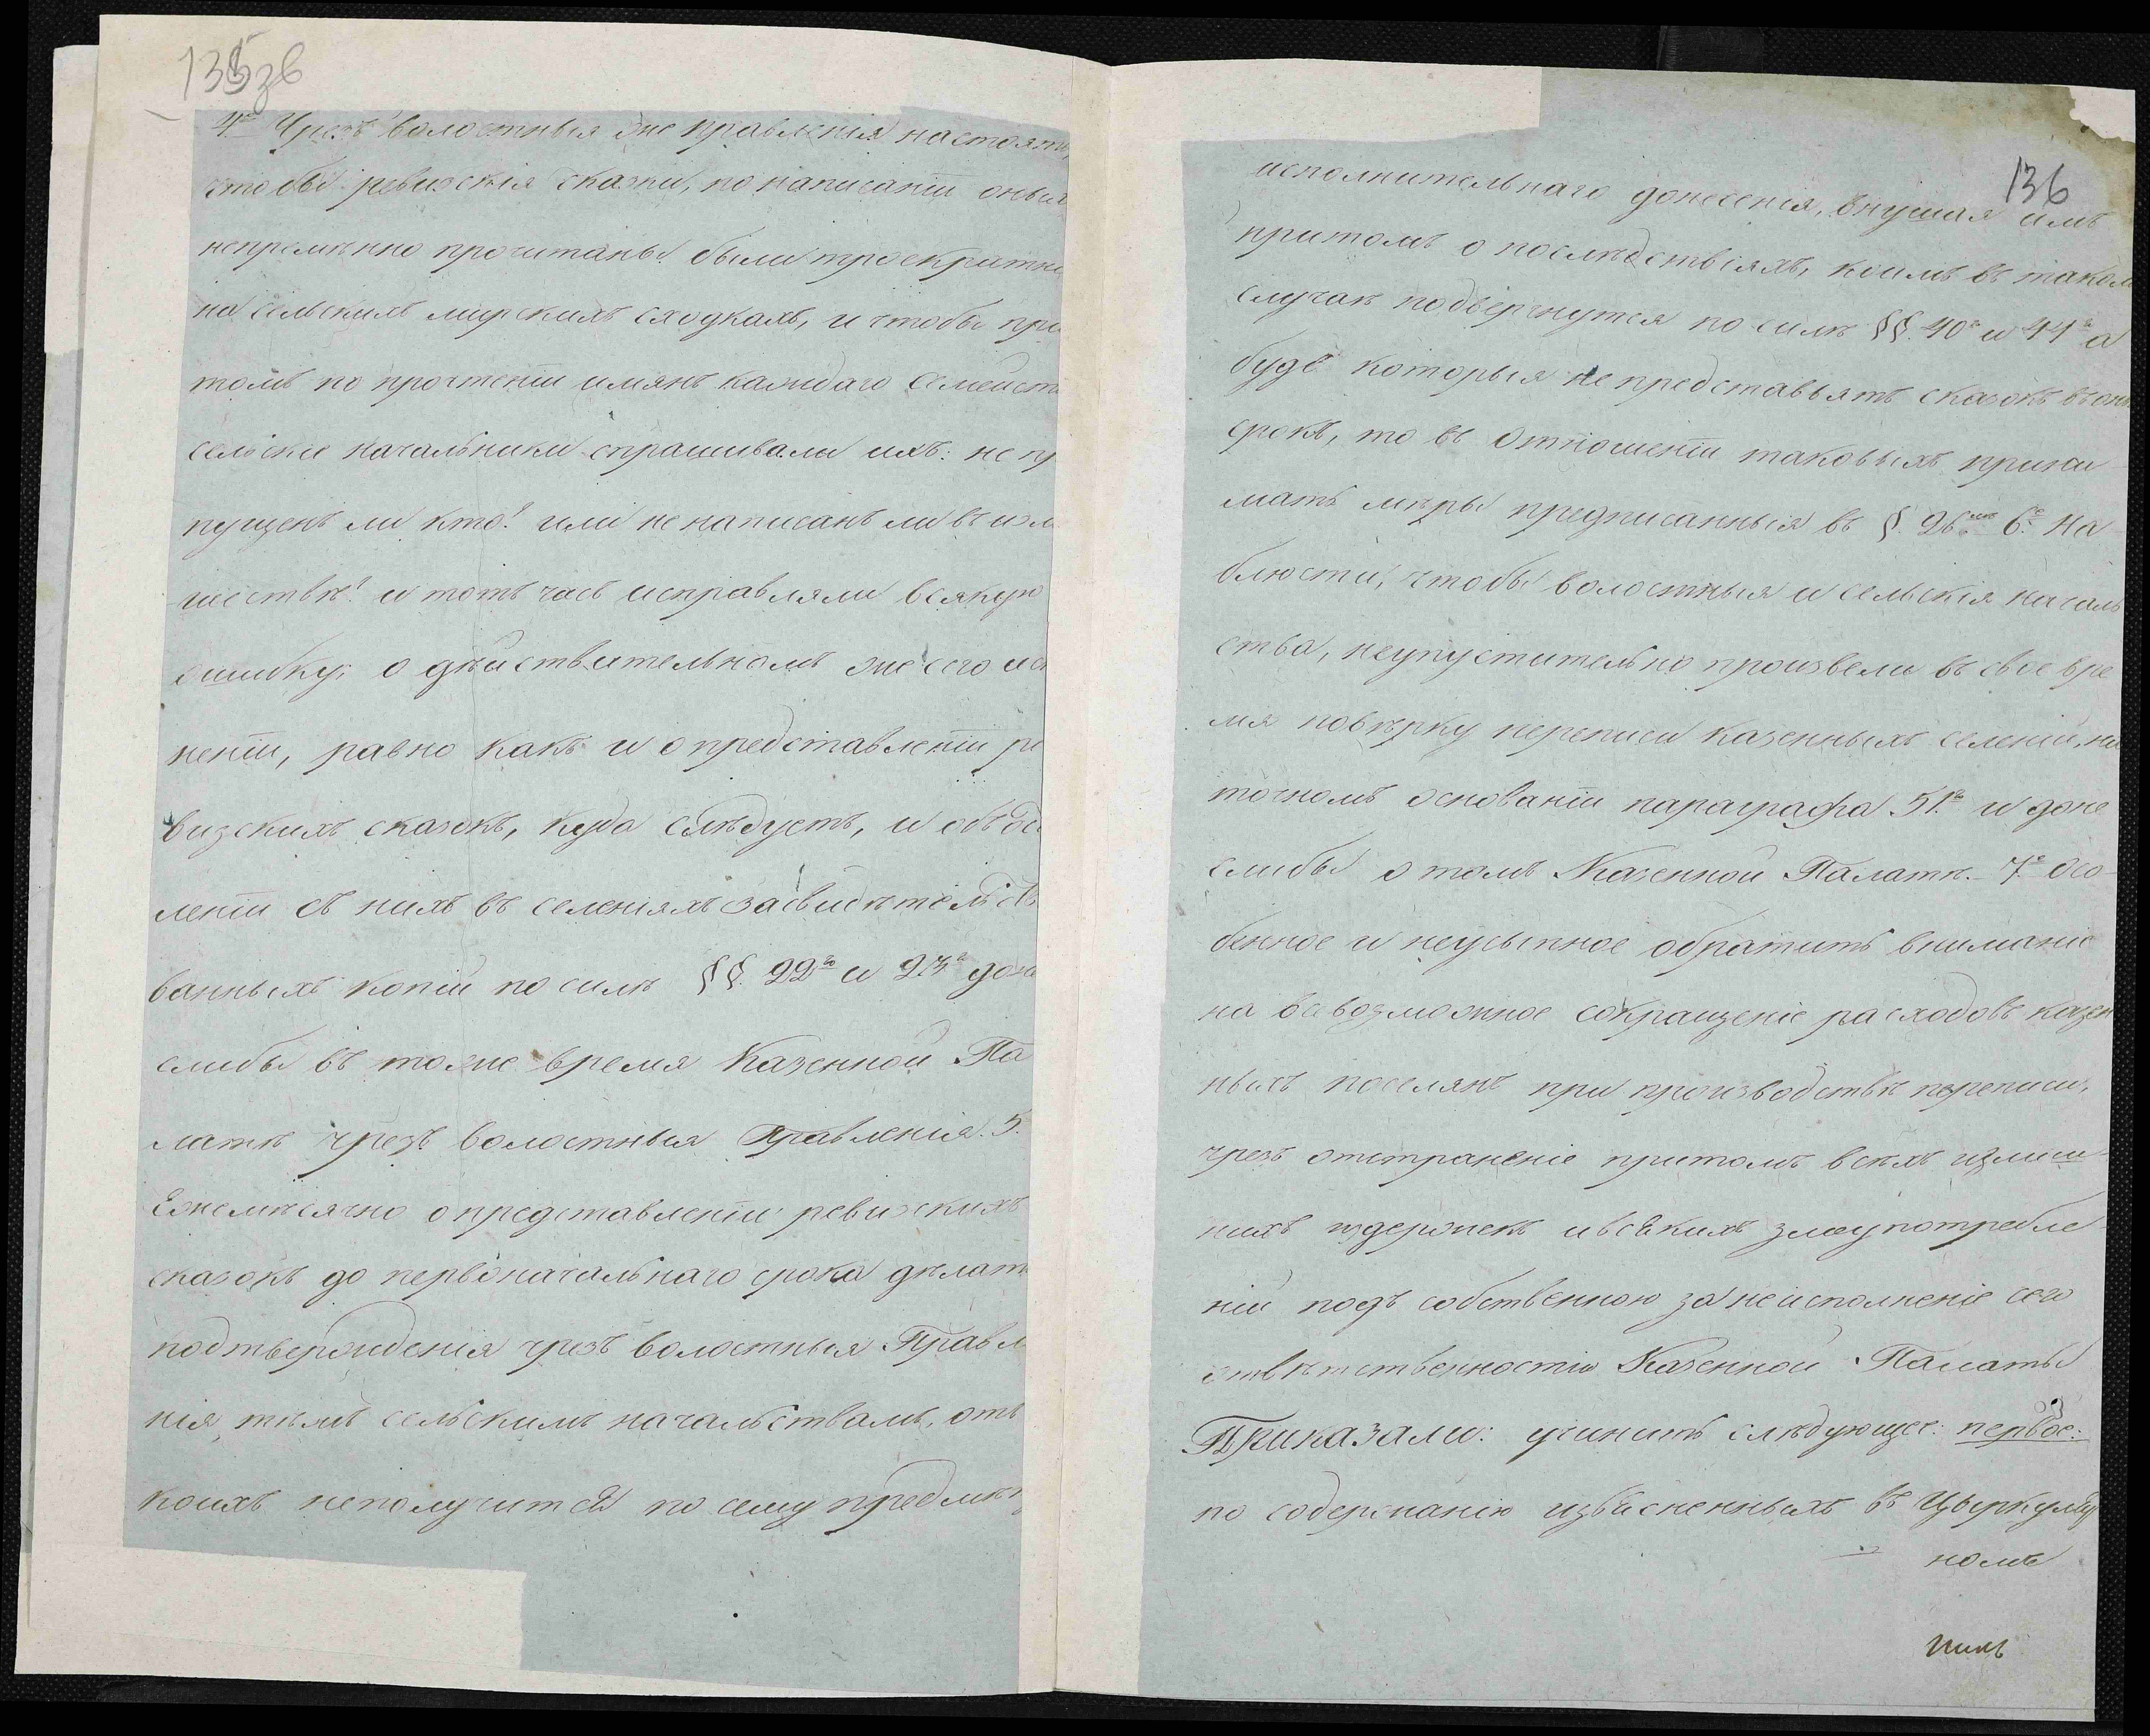 135 зв
4е Чрезъ волостныя же правленія настоять,
чтобы ревизскія сказки, по написаніи оныхъ
непремѣнно прочитаны были троекратно
на сельскихъ мирскихъ сходкахъ, и чтобы при
томъ по прочтеніи имянъ каждаго семейст
сельскіе начальники спрашивали ихъ: не пр
пущенъ ли кто? или не написанъ ли въ изл
шествѣ? и тотъ часъ исправляли всякую
ошибку; о дѣйствительномъ же сего ис
неніи, равно какъ и о представленіи ре
визскихъ сказокъ, куда слѣдуетъ, и объ ос
леніи съ нихъ въ селеніяхъ засвидѣтельст
ванныхъ копій по силѣ §§. 22го и 23го доне
слибы въ тоже время Казенной Па
латѣ чрезъ волостныя Правленія. 5.
Ежемѣсячно о представленіи ревизскихъ
сказокъ до первоначальнаго срока дѣлать
подтвержденія чрезъ волостныя Правл
нія, тѣмъ сельскимъ начальствамъ, отъ
коихъ неполучится по сему предмѣт
136
исполнительнаго донесенія, внушая имъ
притомъ о послѣдствіяхъ, коимъ въ таком
случаѣ подвергнутся по силѣ §§. 40го и 44го а
будѣ которыя не представятъ сказокъ въ он
срокъ, то въ отношеніи таковыхъ прини
мать мѣры предписанныя въ §. 26мъ 6е На
блюсти, чтобы волостныя и сельскія началь
ства, неупустительно произвели въ свое вре
мя повѣрку переписи казенныхъ селеній, на
точномъ основаніи параграфа 51го и доне
слибы о томъ Казенной Палатѣ. 7е Осо
бенное и неусыпное обратить вниманіе
на всевозможное сокращеніе расходовъ казен
ныхъ поселянъ при производствѣ переписи,
чрезъ отстраненіе притомъ всѣхъ излиш
нихъ издержекъ и всякихъ злоупотребле
ній подъ собственною за неисполненіе сего
отвѣтственностію Казенной Палаты
Приказали: учинить слѣдующее: первое:
по содержанію изъясненныхъ въ Цыркуляр
номъ